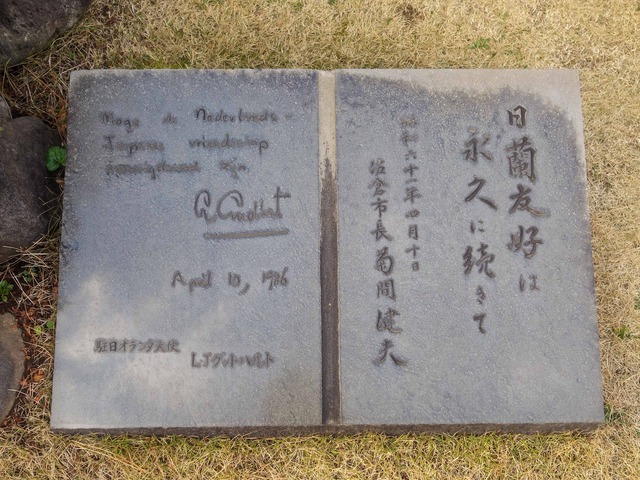 Moge de Nederlands-
Japanse vriendschap
eeuwigdurend zijn
April 10, 1986
駐日オランダ大使
L.J.グットハルト
日蘭友好は
永久に続きて
昭和六十一年四月十日
佐倉市長 菊間健夫